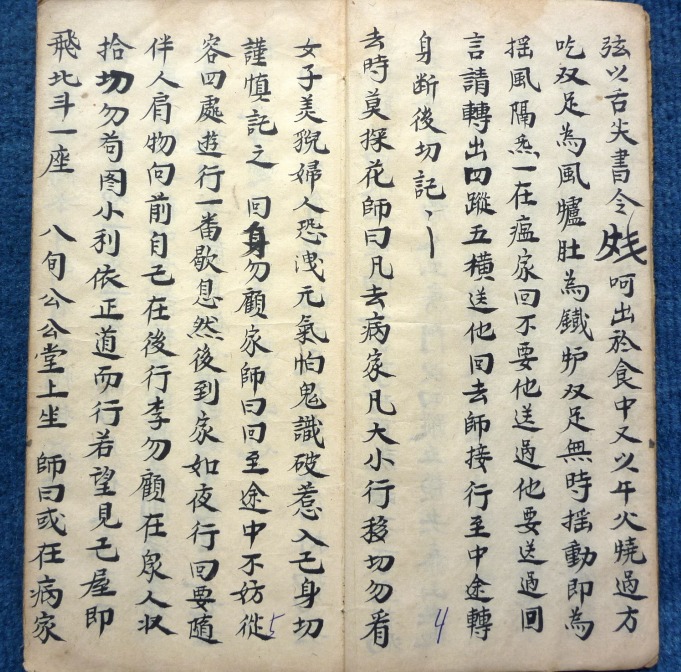 弦以舌尖書令 呵出於食中又以午火燒過方
吃双足為風爐肚為鐵炉双足無時揺動即為
揺風隔炁一在瘟家回不要他送過他要送過回
言請轉出四蹤五橫送他回去師接行至中途轉
身断後切記
去時莫探花師曰凡去病家凡大小行移切勿看
女子美貌婦人恐洩元氣怕鬼識破惹入己身切
謹慎記之 回身勿顧家師曰回至途中不妨從
容四處遊行一番歇息然後到家如夜行回要随
伴人肩物向前自己在後行李勿顧在衆人收
拾切勿苟图小利依正道而行若望見己屋即
飛北斗一座 八旬公公堂上坐 師曰或在病家
4
5